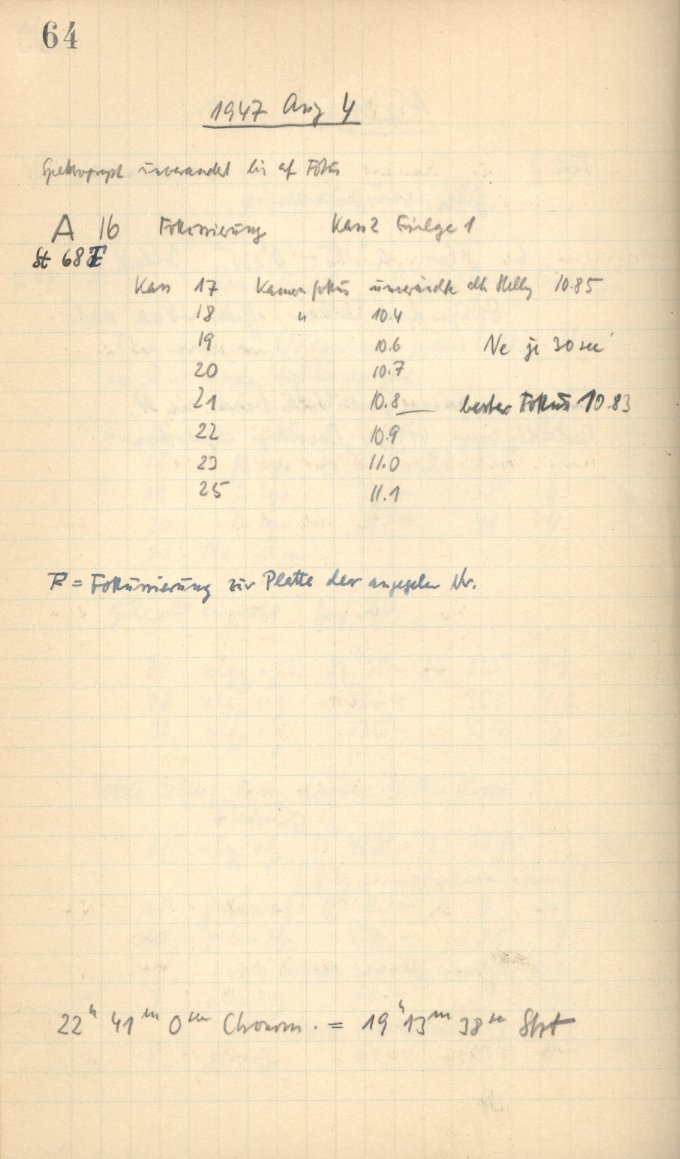 64
1947 Aug 4
Spektrograph unverändert bis auf Fokus
A 16 Fokussierung Kass 2 Einlge 1
St 68 F
Kass 17 Kamerafokus unverändte alte Stellg 10.85
18 " 10.4
19 10.6 Ne je 30 sec
20 10.7
21 10.8 — bester Fokus 10.83
22 10.9
23 11.0
25 11.1
F = Fokussierung zur Platte der angegeben Nr.
22h 41m 0sec Chronom. = 19h 13m 38se